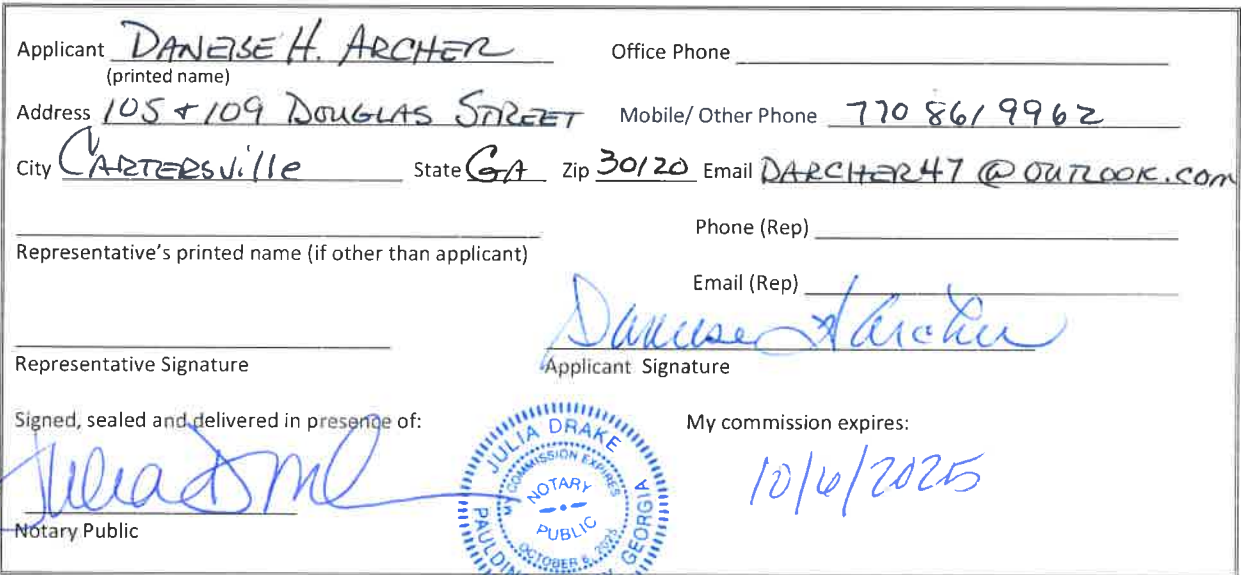 Applicant DANEISE H. ARCHER Office Phone
(printed name)
Address 105 + 109 DOUGLAS STREET Mobile/ Other Phone 770 861 9962
City CARTERSVille State GA Zip 30120 Email DARCHER47@OUTLOOK.COM
Phone (Rep)
Representative's printed name (if other than applicant)
Email (Rep)
Daneise H Archer
Representative Signature Applicant Signature
Signed, sealed and delivered in presence of: My commission expires:
Julia
10/6/2025
Notary Public
JULIA DRAKE
MY COMMISSION EXPIRES
NOTARY
PUBLIC
OCTOBER 6, 2025
PAULDING GEORGIA